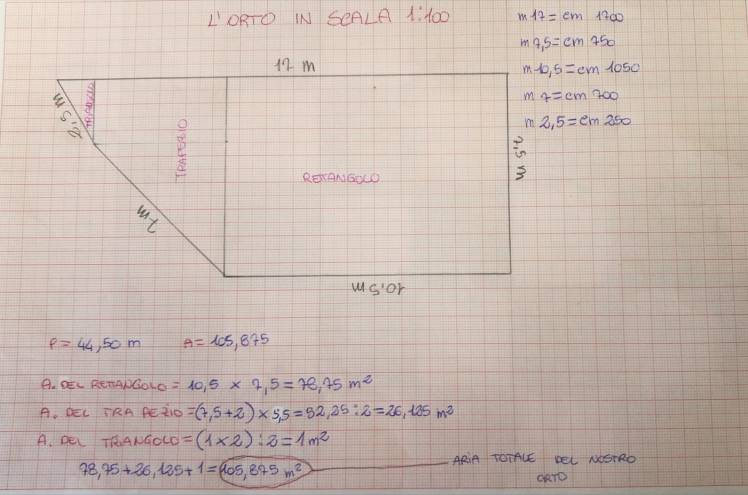 L'ORTO IN SCALA 1:100
m 17 = cm 1700
m 7,5 = cm 750
m 10,5 = cm 1050
m 7 = cm 700
m 2,5 = cm 250
17 m
2,5 m
TRIANGOLO
TRAPEZIO
RETTANGOLO
7,5 m
7 m
10,5 m
P = 44,50 m A = 105,875
A. DEL RETTANGOLO = 10,5 × 7,5 = 78,75 m²
A. DEL TRAPEZIO = (7,5+2) × 5,5 = 52,25 : 2 = 26,125 m²
A. DEL TRIANGOLO = (1×2) : 2 = 1 m²
78,75 + 26,125 + 1 = 105,875 m² ARIA TOTALE DEL NOSTRO
ORTO